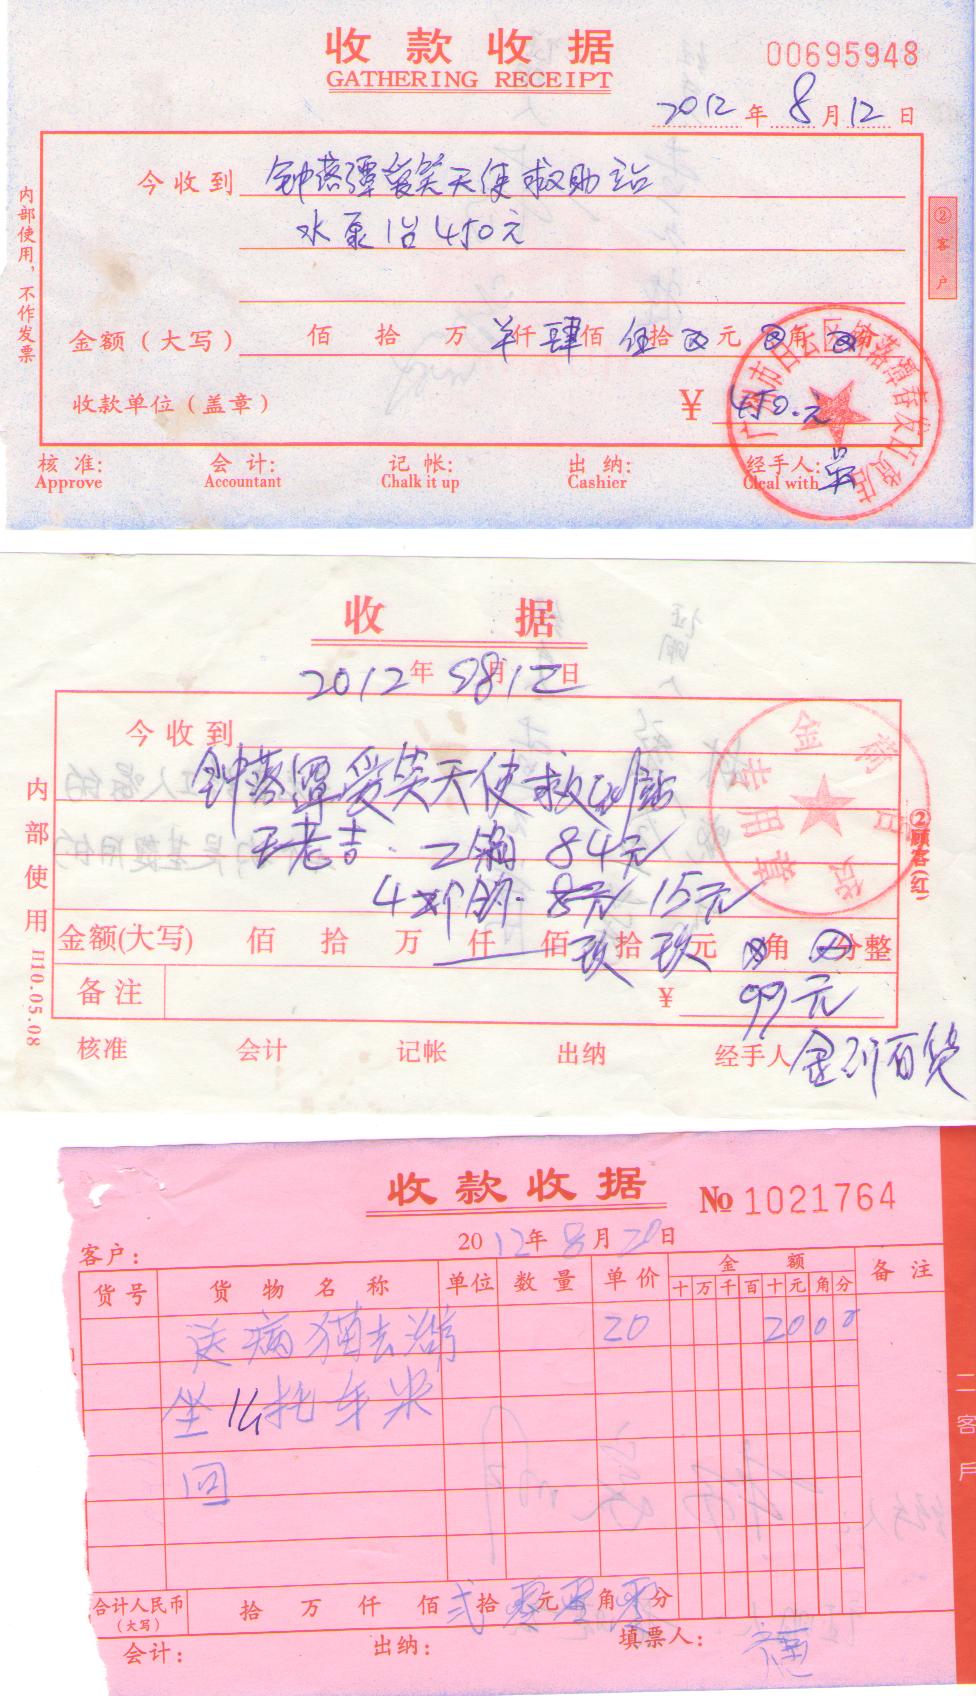 收款收据
GATHERING RECEIPT
00695948
2012年8月12日
今收到 钟落潭爱笑天使救助站
水泵1台450元
金额（大写） 佰 拾 万 仟肆佰伍拾⊗元⊗角⊗分
收款单位（盖章） ¥ 450.元
核 准: 会 计: 记 帐: 出 纳: 经手人:
Approve Accountant Chalk it up Cashier Cleal with
内部使用，不作发票
②客户
广州市白云区钟落潭春友百货店
收 据
2012年8月12日
今收到
钟落潭爱笑天使救助站
王老吉 二箱 84元
15元
金额(大写) 佰 拾 万 仟 佰玖拾玖元⊗角⊗分整
备注 ¥ 99元
核准 会计 记帐 出纳 经手人
百货
内部使用 H10.05.08
②顾客(红)
专用章
收款收据
No 1021764
2012年8月20日
客户:
货号 货物名称 单位 数量 单价 金额 备注
十 万 千 百 十 元 角 分
送病猫去 20 2000
坐 托车来
回
合计人民币 拾 万 仟 佰 贰拾零元零角零分
(大写)
会计: 出纳: 填票人:
二客户